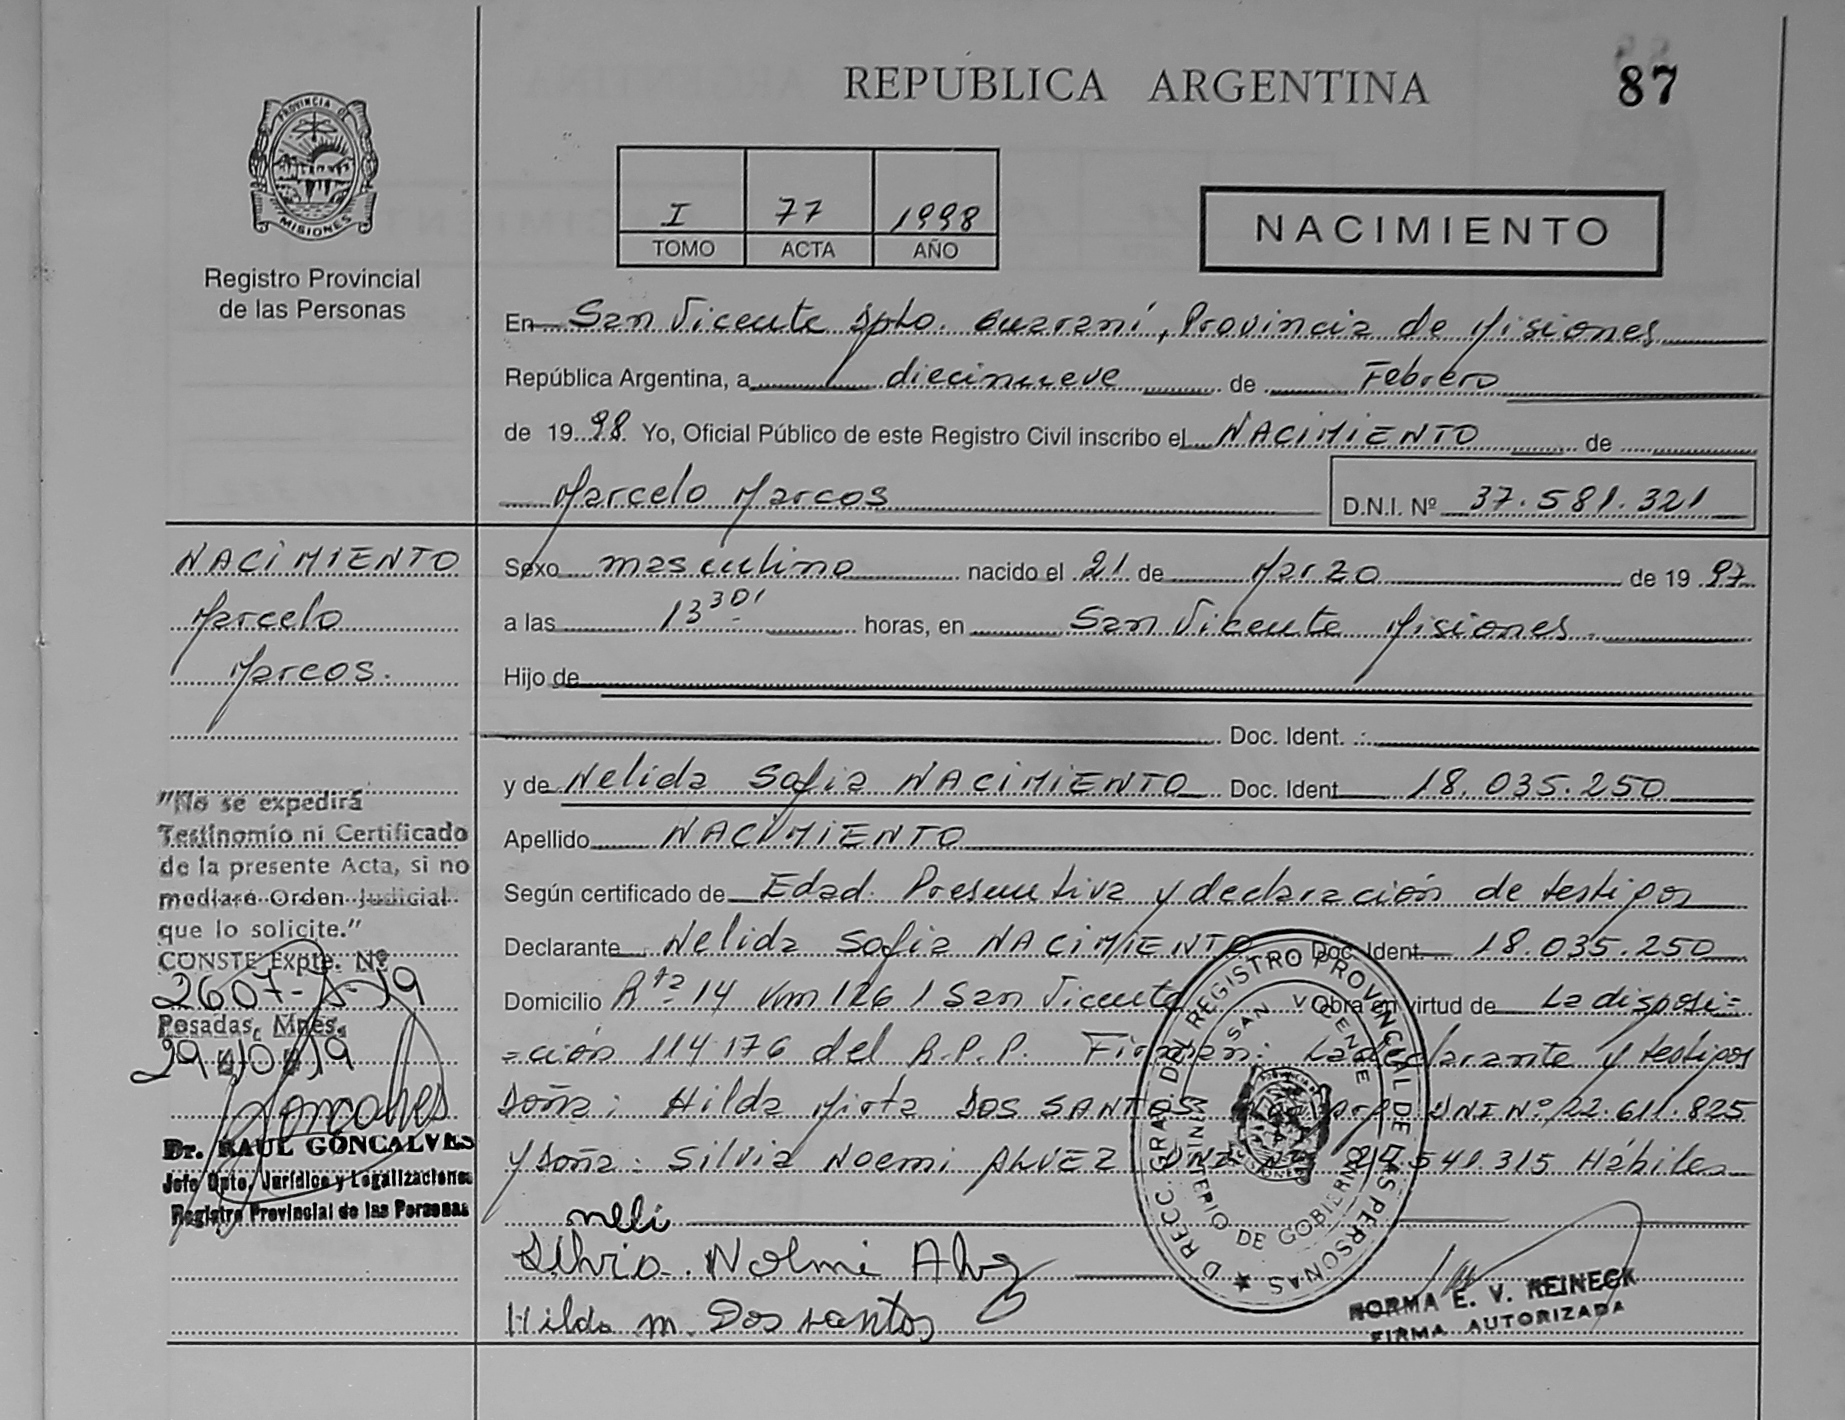 REPUBLICA ARGENTINA
87
PROVINCIA DE
MISIONES
Registro Provincial
de las Personas
I 77 1998
TOMO ACTA AÑO
NACIMIENTO
En San Vicente Dpto. Guaraní, Provincia de Misiones
República Argentina, a diecinueve de Febrero
de 19 98 Yo, Oficial Público de este Registro Civil inscribo el NACIMIENTO de
Marcelo Marcos
D.N.I. Nº 37.581.321
NACIMIENTO
Marcelo
Marcos.
Sexo masculino nacido el 21 de Marzo de 19 97
a las 13 30' horas, en San Vicente Misiones.
Hijo de
Doc. Ident. :
y de Nelida Sofia NACIMIENTO Doc. Ident 18.035.250
Apellido NACIMIENTO
Según certificado de Edad. Presuntiva y declaración de testigos
Declarante Nelida Sofia NACIMIENTO Doc. Ident 18.035.250
Domicilio Rta 14 Km 126 1 San Vicente Obra en virtud de La disposi=
=ción 114176 del R.P.P. Firman: La declarante y testigos
Doña: Hilda Mirta DOS SANTOS DNI Nº 22.611.825
y Doña: Silvia Noemi ALVEZ DNI Nº 541.315 Hábiles
neli
Silvia. Noemi Alvez
Hilda m. Dos santos
"No se expedirá
Testinomio ni Certificado
de la presente Acta, si no
mediaré Orden Judicial
que lo solicite."
CONSTE Expte. Nº
2607- -19
Posadas, Mnes.
29 10 19
Dr. RAUL GONCALVES
Jefe Dpto. Jurídico y Legalizaciones
Registro Provincial de las Personas
DIRECC. GRAL. DEL REGISTRO PROVINCIAL DE LAS PERSONAS
SAN VICENTE
MINISTERIO DE GOBIERNO
NORMA E. V. REINECK
FIRMA AUTORIZADA